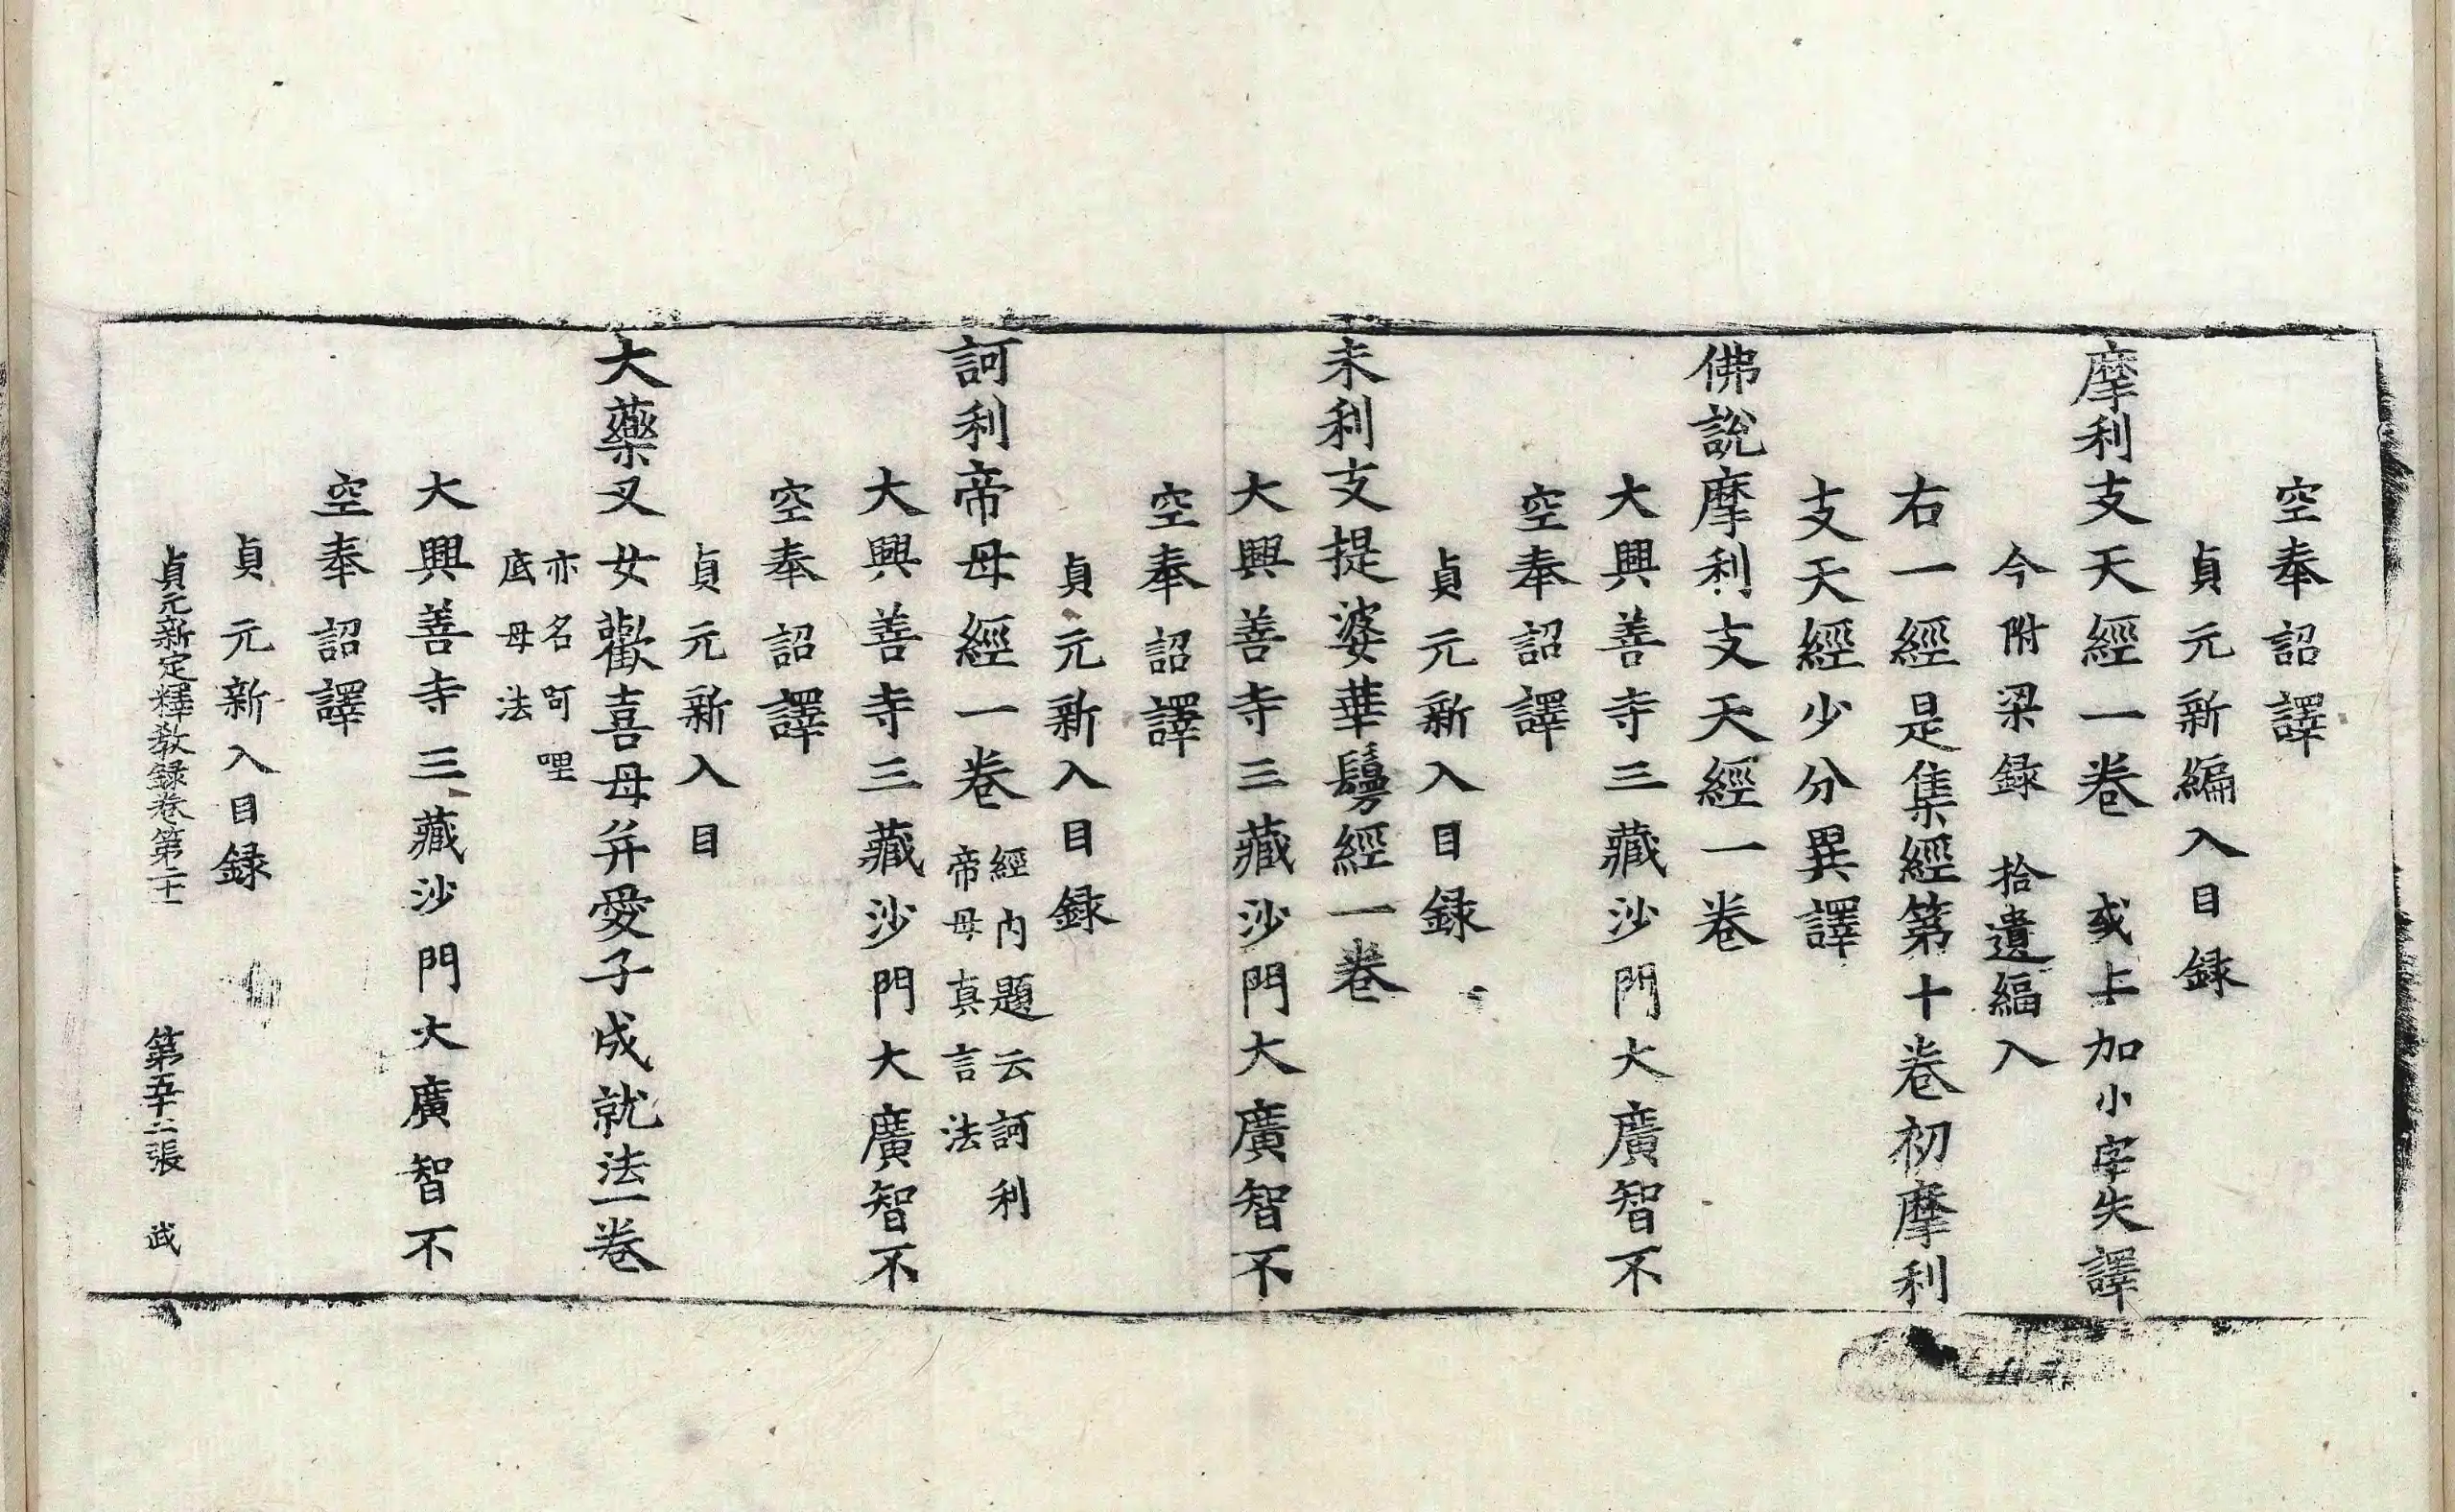 空奉詔譯
貞元新編入目録
摩利支天經一卷 或上加小字失譯
今附梁録 拾遺編入
右一經是集經第十卷初摩利
支天經少分異譯
佛說摩利支天經一卷
大興善寺三藏沙門大廣智不
空奉詔譯
貞元新入目録
末利支提婆華鬘經一卷
大興善寺三藏沙門大廣智不
空奉詔譯
貞元新入目録
訶利帝母經一卷 經內題云訶利
帝母真言法
大興善寺三藏沙門大廣智不
空奉詔譯
貞元新入目
大藥叉女歡喜母并愛子成就法一卷
亦名呵哩
底母法
大興善寺三藏沙門大廣智不
空奉詔譯
貞元新入目録
貞元新定釋教録卷第二十 第五十二張 武